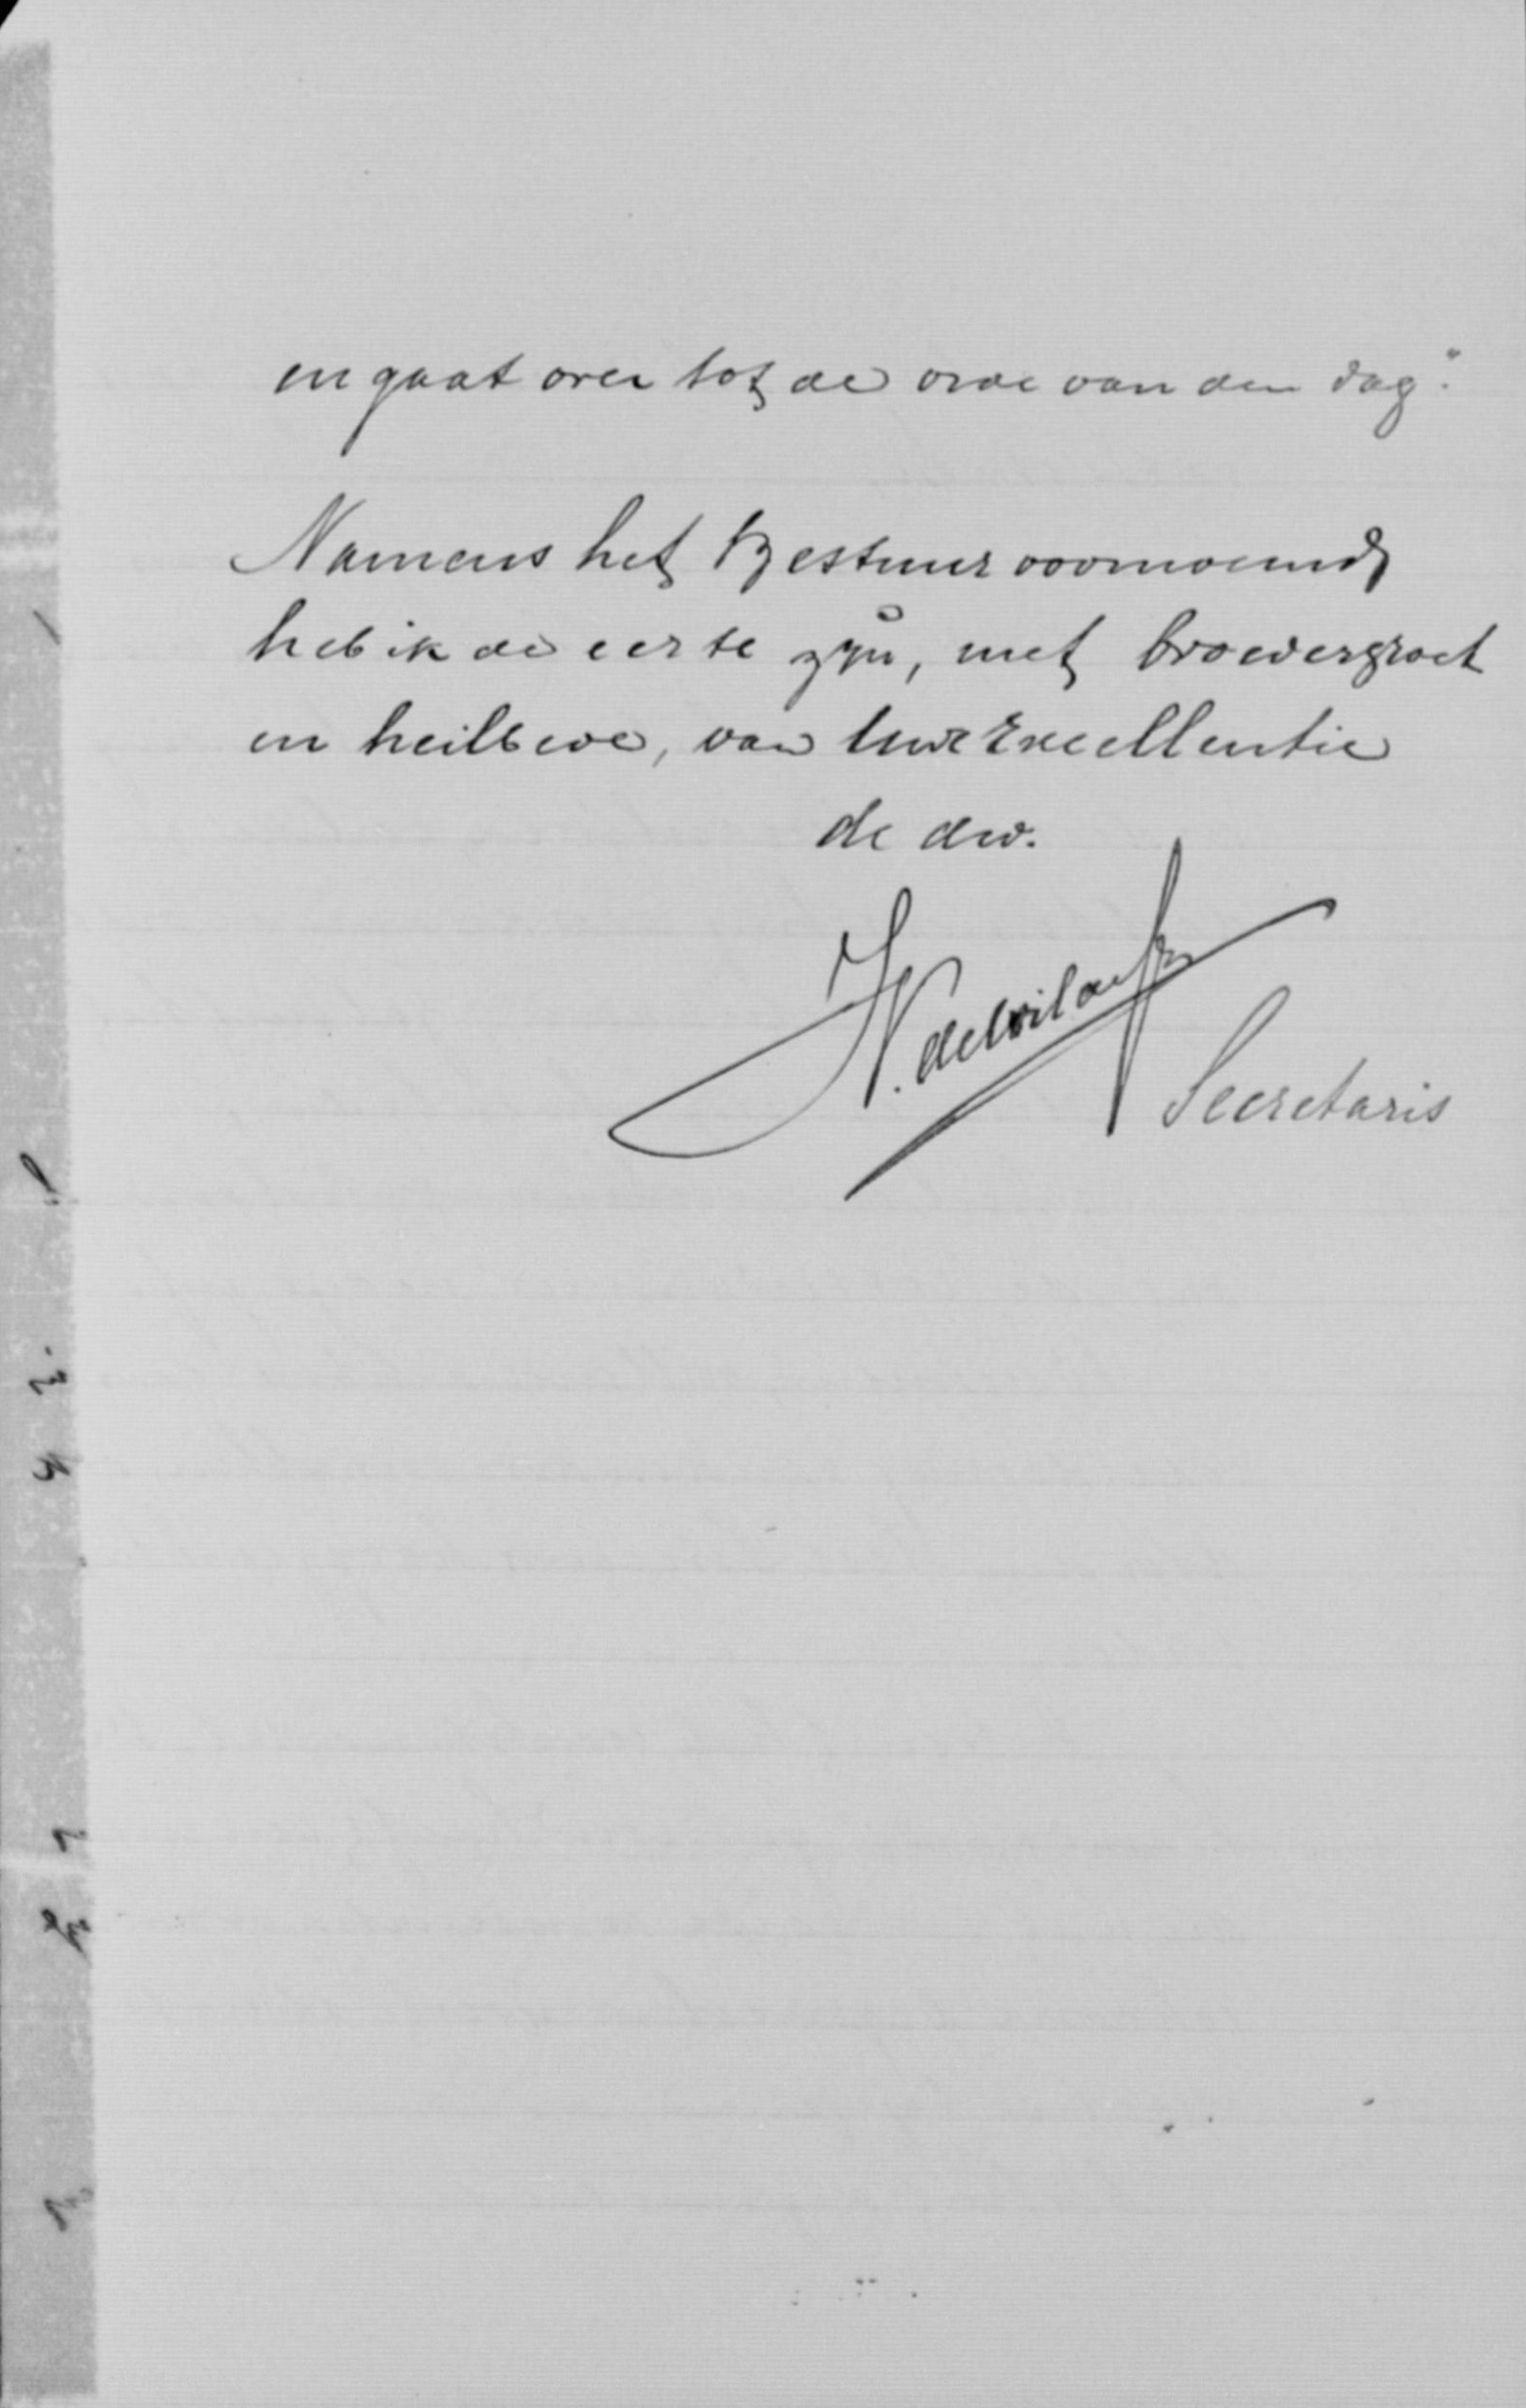 en gaat over tot de orde van den dag."
Namens het Bestuur voornoemd
heb ik de eer te zijn, met broedergroet
en heilbede, van Uwe Excellentie
de dw.
H. de Wilde
Secretaris